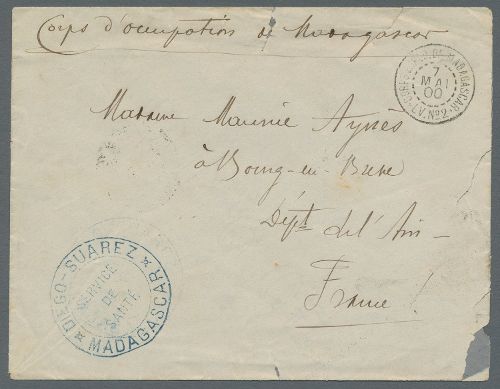 Corps d'occupation de Madagascar
MADAGASCAR
7
MAI
00
Nº2
Madame Maurice Ayvès
à Bourg-en-Bresse
Dépt de l'Ain
France
DIEGO-SUAREZ
SERVICE
DE
SANTÉ
MADAGASCAR